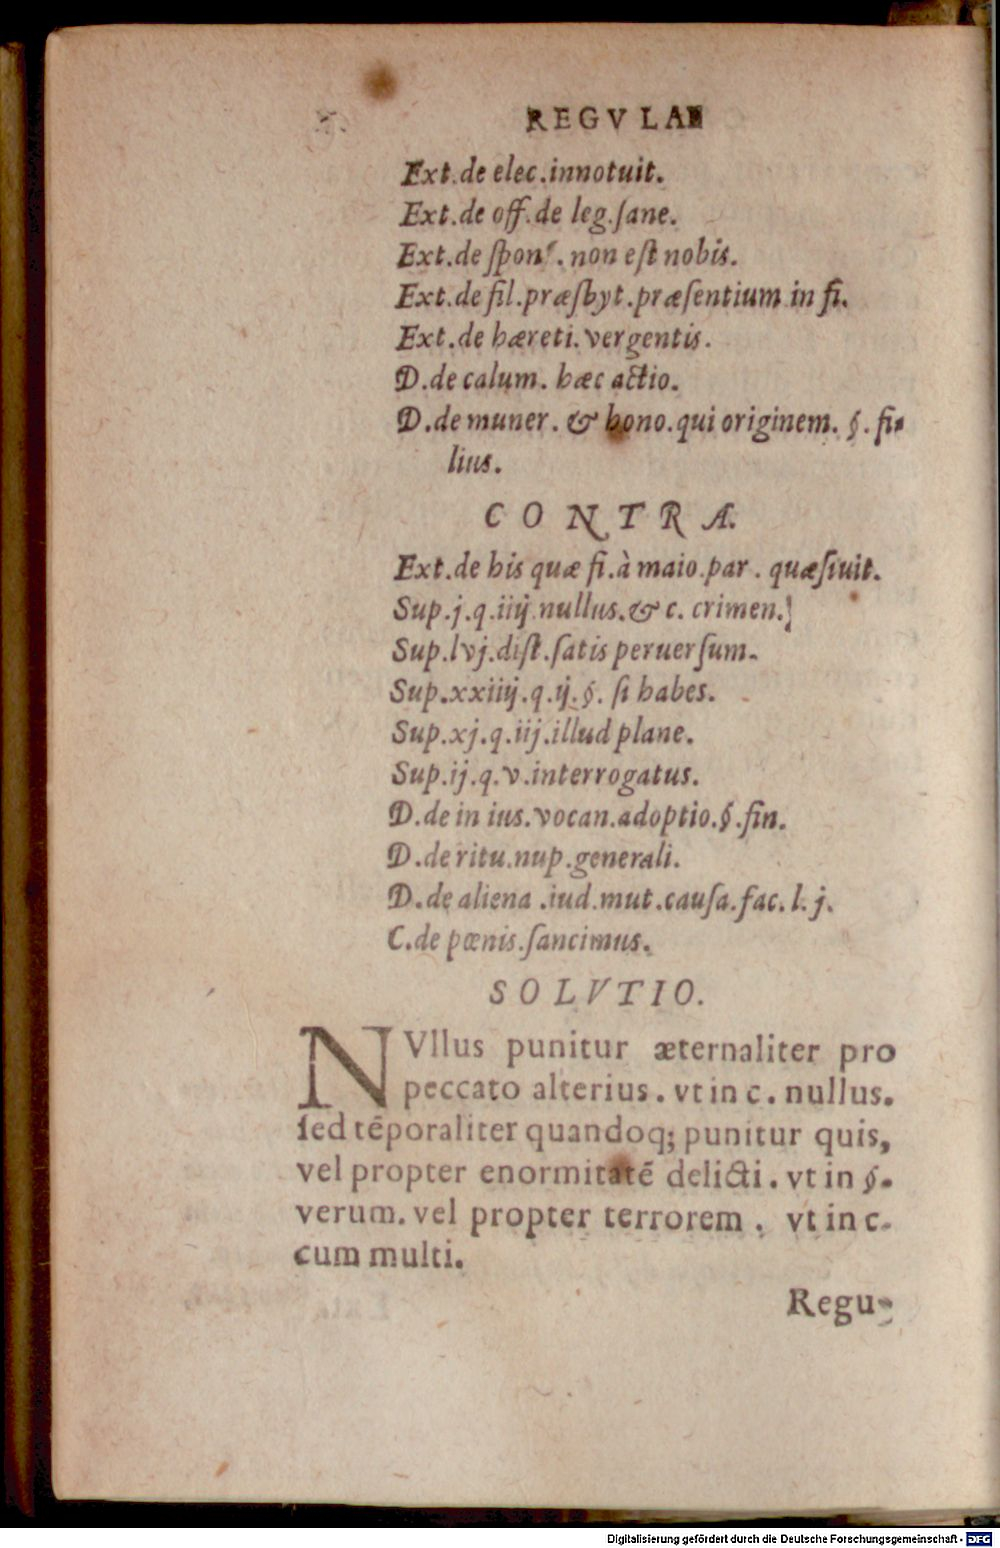 REGVLAE
Ext.de elec.innotuit.
Ext.de off.de leg.ſane.
Ext.de ſponſ.non eſt nobis.
Ext.de fil.præſbyt.præſentium in fi.
Ext.de hæreti.vergentis.
D.de calum. hæc actio.
D.de muner. & hono.qui originem. §. fi-
lius.
CONTRA.
Ext.de his quæ fi.à maio.par. quæſiuit.
Sup.j.q.iiij.nullus.& c. crimen.
Sup.lvj.diſt.ſatis peruerſum.
Sup.xxiiij.q.ij.§. ſi habes.
Sup.xj.q.iij.illud plane.
Sup.ij.q.v.interrogatus.
D.de in ius.vocan.adoptio.§.fin.
D.de ritu.nup.generali.
D.de aliena .iud.mut.cauſa.fac.l.j.
C.de pœnis.ſancimus.
SOLVTIO.
NVllus punitur æternaliter pro
peccato alterius. vt in c. nullus.
ſed tēporaliter quandoq; punitur quis,
vel propter enormitatē delicti. vt in §.
verum. vel propter terrorem. vt in c.
cum multi.
Regu-
Digitalisierung gefördert durch die Deutsche Forschungsgemeinschaft - DFG